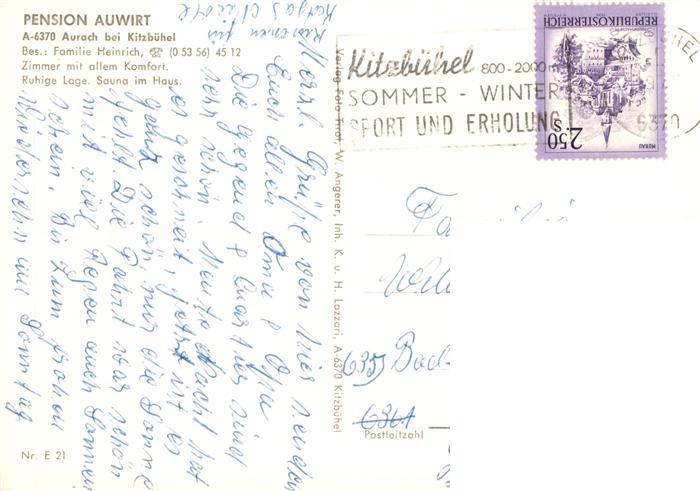 PENSION AUWIRT
A-6370 Aurach bei Kitzbühel
Bes.: Familie Heinrich, ☎ (0 53 56) 45 12
Zimmer mit allem Komfort.
Ruhige Lage. Sauna im Haus.
Herzl. Grüße von hier senden
Euch allen Oma & Opa
Die Gegend & Quartier sind
sehr schön. Heute Nacht hat
es geschneit, jetzt ist es
ganz schön, nur die Sonne
fehlt. Die Fahrt war schön
mit viel Regen auch Sonnen
schein. Bis zum frohen
Wiedersehn am Sonntag
Nr. E 21
Verlag Foto Tirol, W. Angerer, Inh. K. u. H. Lazzari, A-6370 Kitzbühel
Kitzbühel 800-2000m
SOMMER - WINTER
SPORT UND ERHOLUNG
6370
REPUBLIK ÖSTERREICH
2.50
S
MURAU
6355 Bad-
6361
Postleitzahl